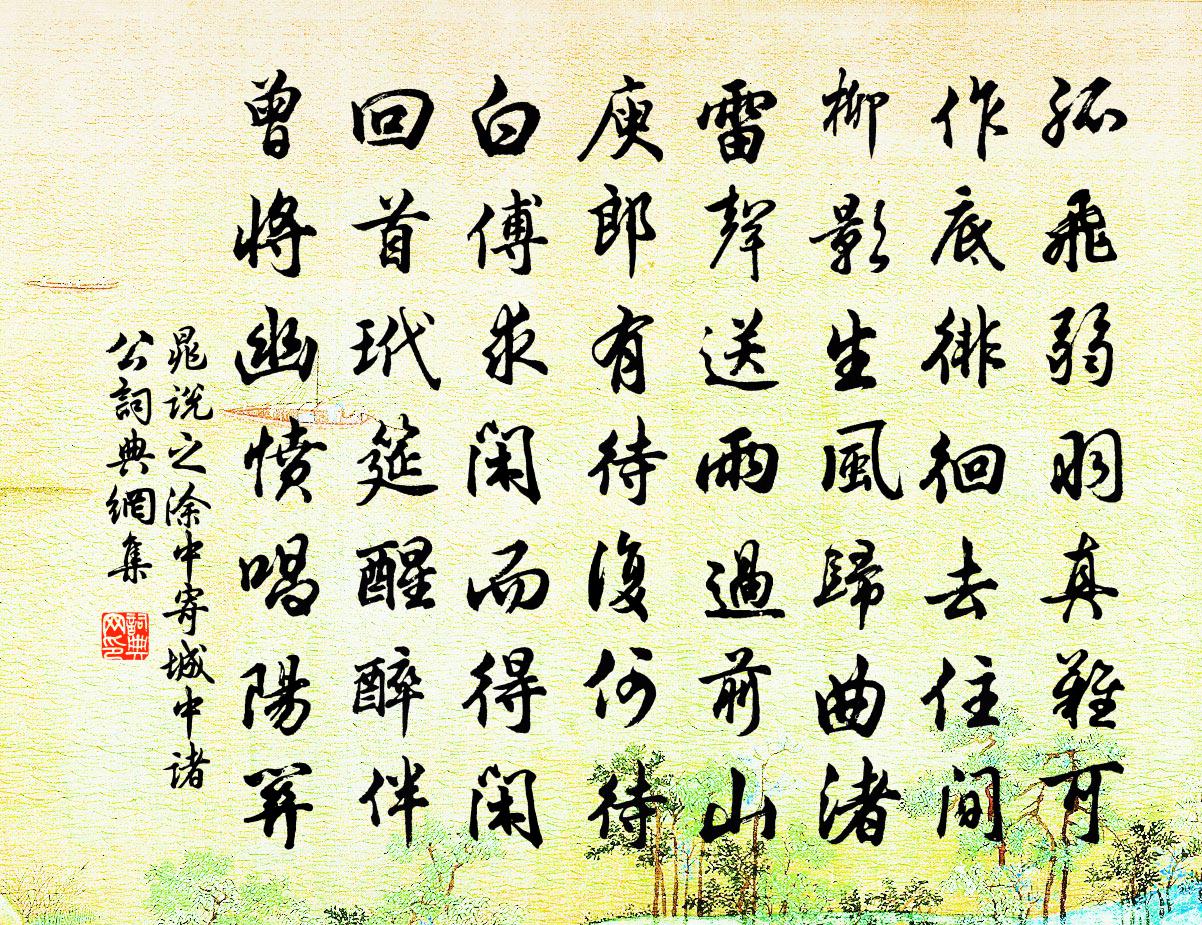 孤飛弱羽真難可
作底徘徊去住間
柳影生風歸曲渚
雷聲送雨過前山
庾郎有待復何待
白傅求閑而得閑
回首玳筵醒醉伴
曾將幽憤唱陽關
晁說之涂中寄城中諸
公詞典網集
詞典
网印